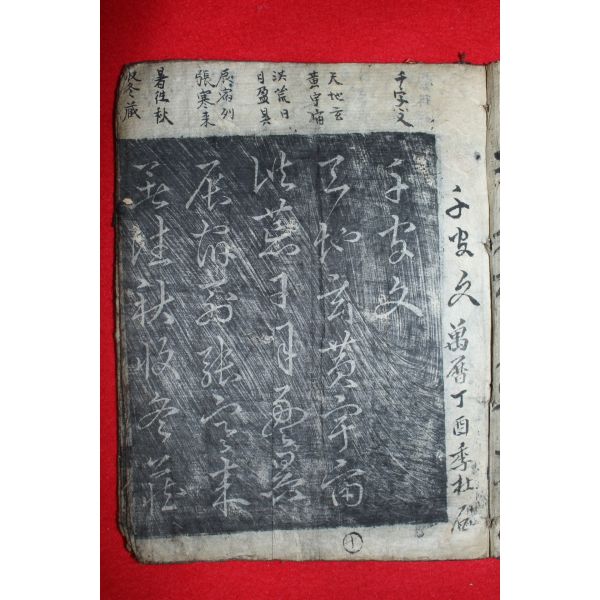 千字文 萬曆丁酉季杜
千字文
天地玄
黃宇宙
洪荒日
月盈昃
辰宿列
張寒来
暑往秋
收冬藏
千字文
天地玄黃宇宙
洪荒日月盈昃
辰宿列張寒来
暑往秋收冬藏
十